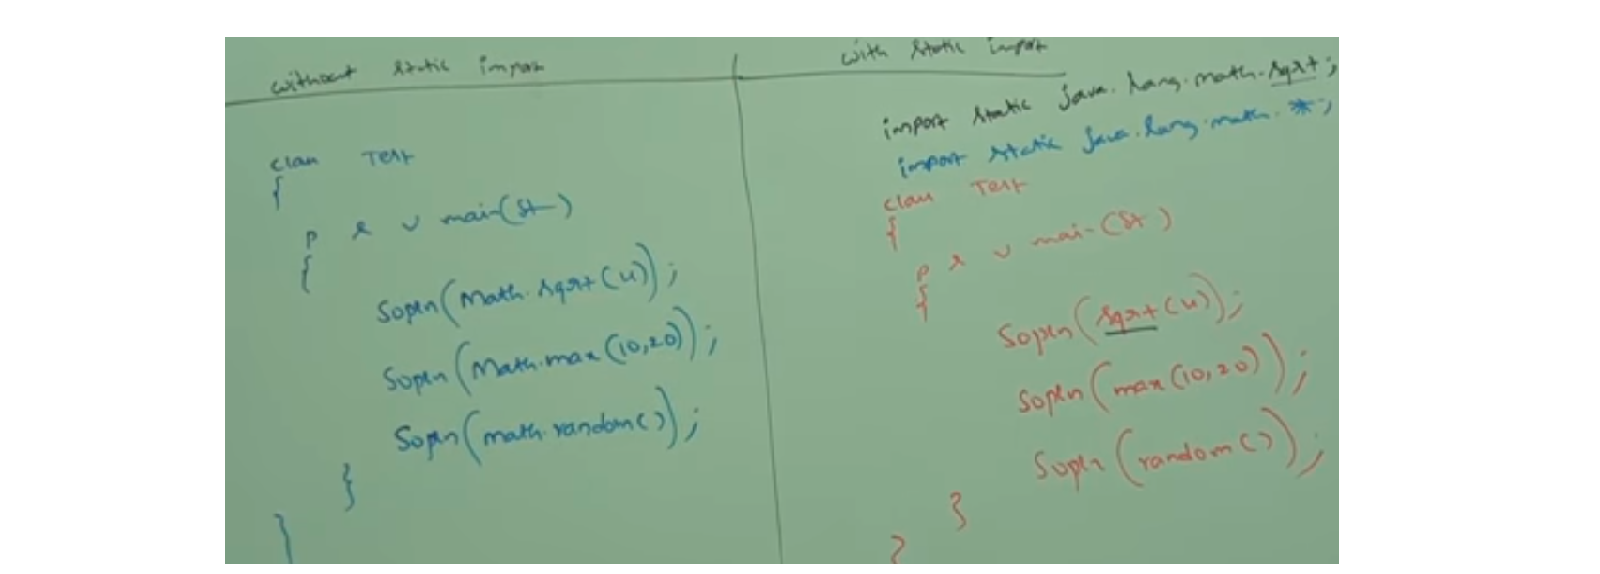 without static import
class Test
{
p s v main(St—)
{
Sopln(Math.sqrt(4));
Sopln(Math.max(10,20));
Sopln(math.random());
}
}
with static import
import static java.lang.math.sqrt;
import static java.lang.math.*;
class Test
{
p s v main(St)
{
Sopln(sqrt(4));
Sopln(max(10,20));
Sopln(random());
}
}